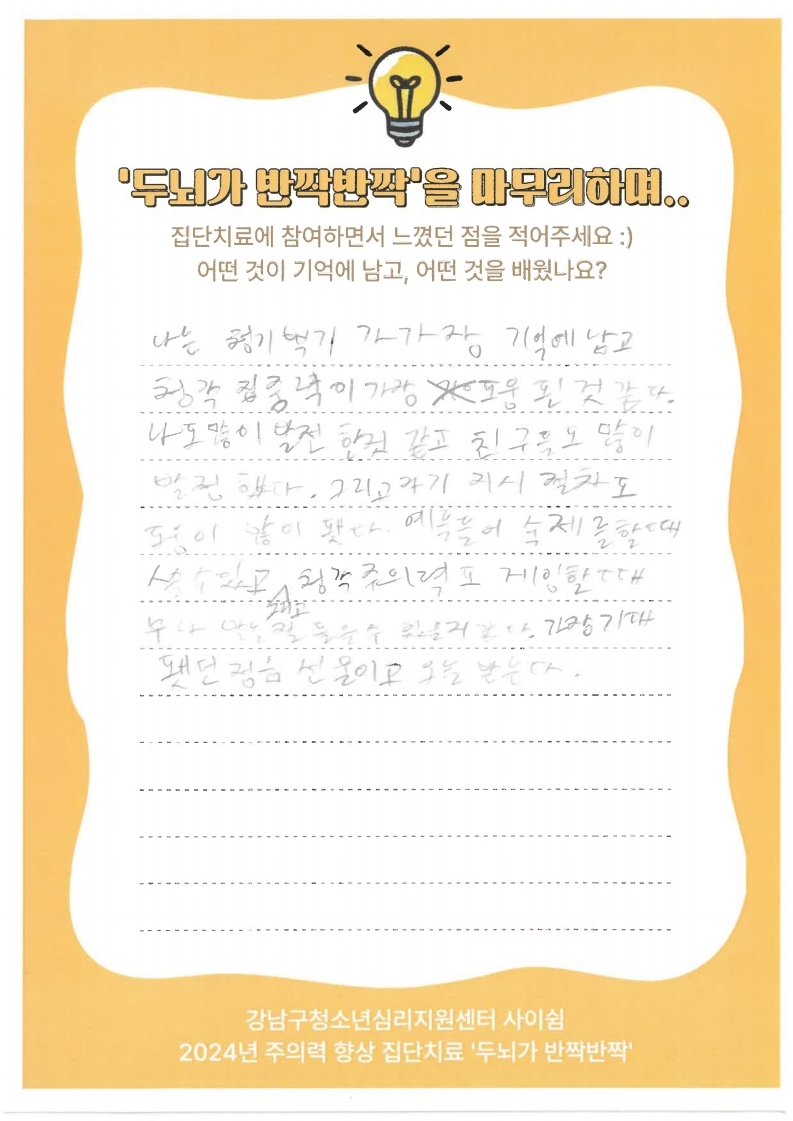 '두뇌가 반짝반짝'을 마무리하며..
집단치료에 참여하면서 느꼈던 점을 적어주세요 :)
어떤 것이 기억에 남고, 어떤 것을 배웠나요?
나는 기 가가장 기억에 남고
청각 집중력이 가장 도움 된 것 같다.
나도 많이 발전 한것 같고 친구들도 많이
발전 했다. 그리고 자기 지시 절차도
도움이 많이 됐다. 예를들어 숙제를할때
쓸수있고 청각 주의력도 게임할때
그리고
들을수 있을거 같다. 가장 기대
됐던 점은 선물이고 오늘 받는다.
강남구청소년심리지원센터 사이쉼
2024년 주의력 향상 집단치료 '두뇌가 반짝반짝'